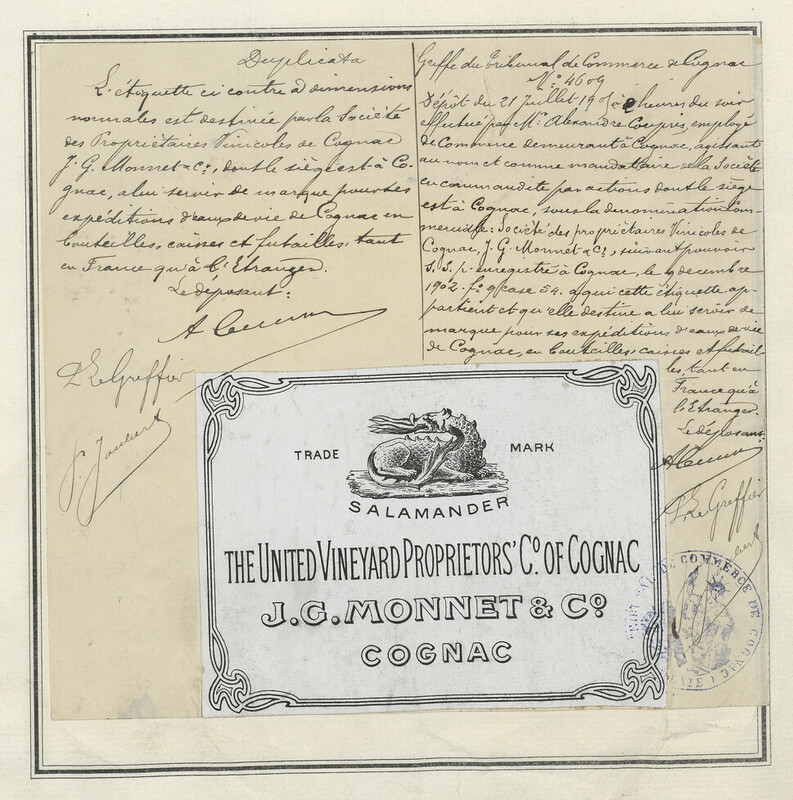 Duplicata
L'étiquette ci contre à dimensions
normales est destinée par la Société
des Propriétaires Vinicoles de Cognac
J. G. Monnet & Co, dont le siège est à Co-
gnac, à lui servir de marque pour ses
expéditions d'eaux de vie de Cognac en
bouteilles, caisses et futailles, tant
en France qu'à l'Etranger.
Le déposant:
Le Greffier
Greffe du Tribunal de Commerce de Cognac
No 4609
Dépôt du 21 Juillet heures du soir
effectué par Mr. Alexandre employé
de Commerce demeurant à Cognac, agissant
au nom et comme mandataire de la Société
en commandite par actions dont le siège
est à Cognac, sous la dénomination Com-
merciale: Société des propriétaires Vinicoles de
Cognac, J. G. Monnet & Co, suivant pouvoir
S.S.p. enregistré à Cognac, le 9 décembre
1902. fo 9 case 54. à qui cette étiquette ap-
partient et qu'elle destine à lui servir de
marque pour ses expéditions d'eaux de vie
de Cognac, en bouteilles, caisses et futail-
les, tant en
France qu'à
l'Etranger.
Le déposant:
Le Greffier
TRADE MARK
SALAMANDER
THE UNITED VINEYARD PROPRIETORS' Co. OF COGNAC
J.G. MONNET & Co
COGNAC
DE COMMERCE DE COGNAC